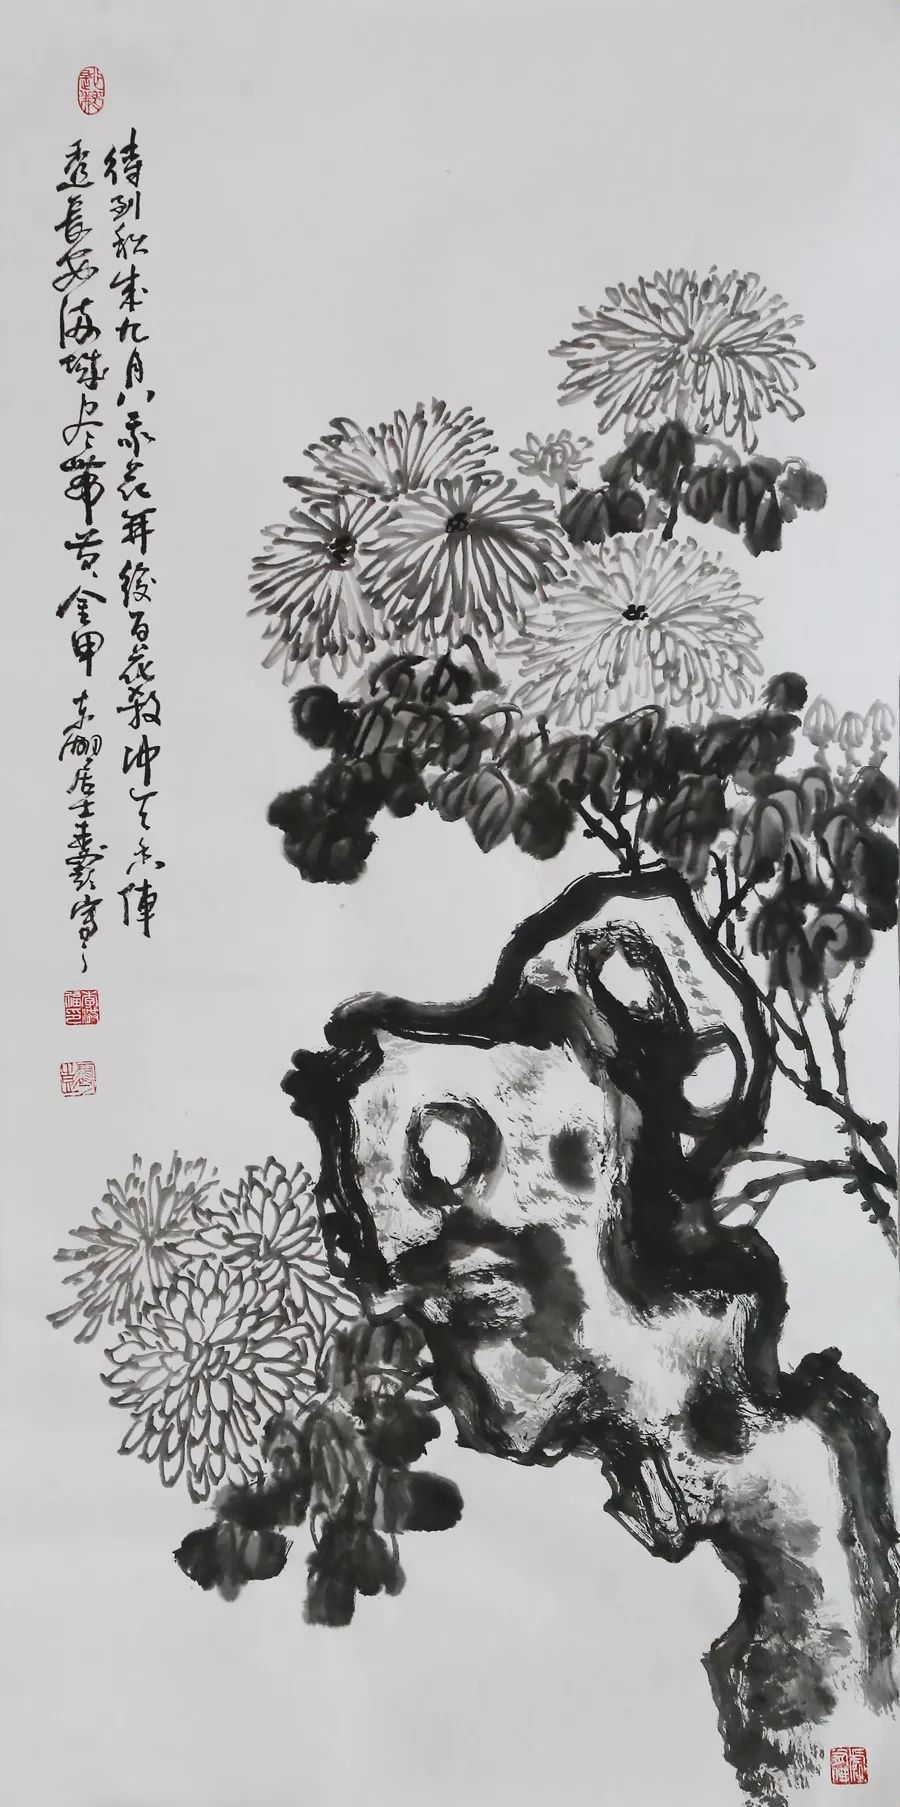 待到秋来九月八我花开后百花杀冲天香阵
透长安满城尽带黄金甲 东湖居士 写之